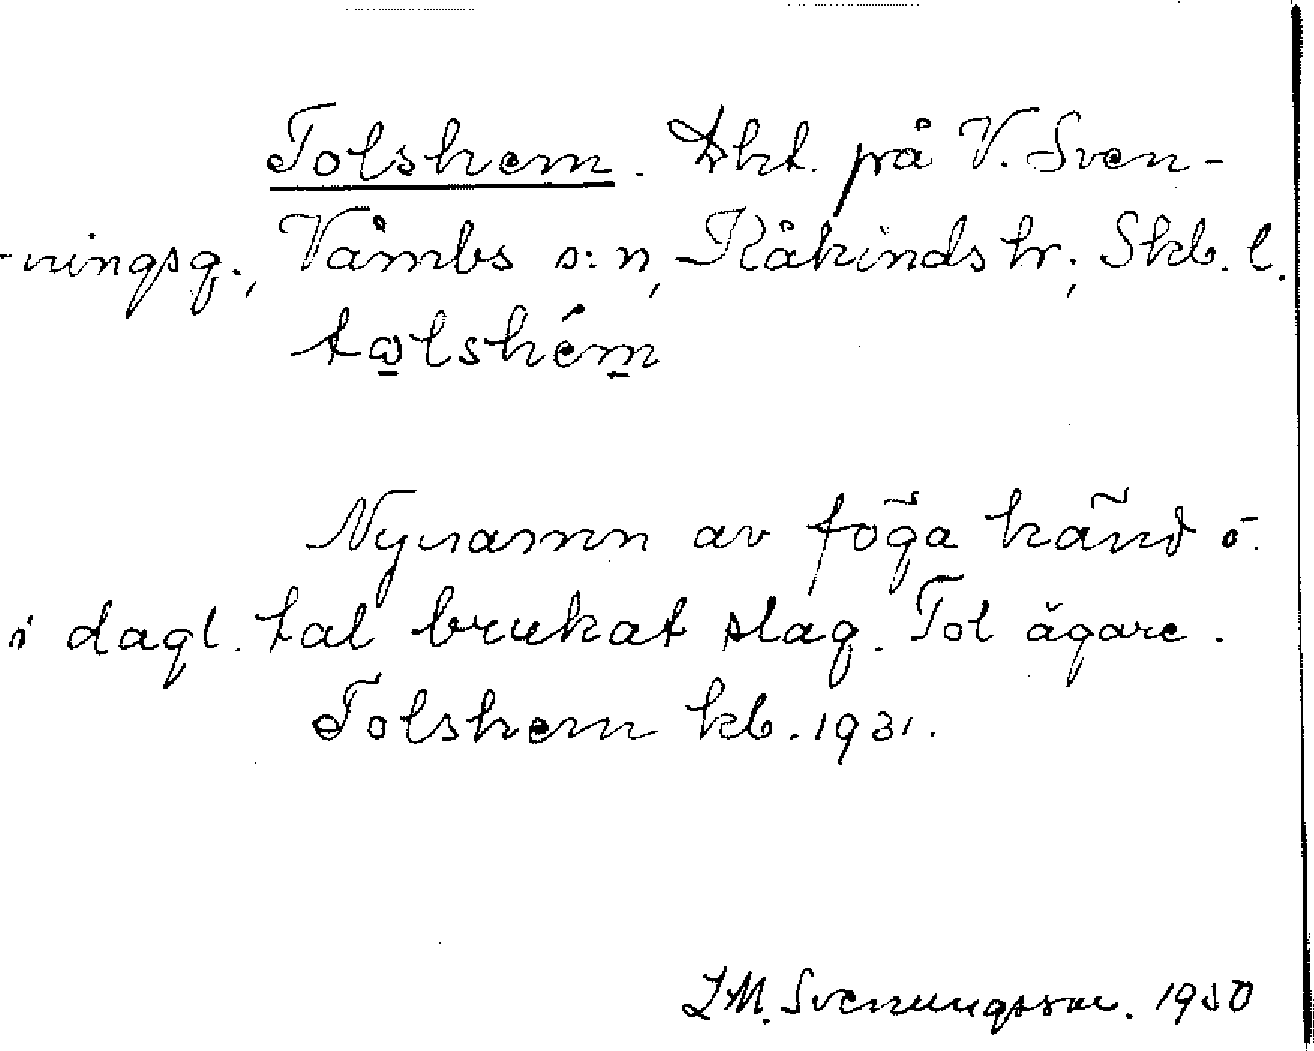 Tolshem. Lht. på V. Sven-
-ningsg., Våmbs s:n, Kåkinds hr; Skb. l.
tolshém
Nynamn av föga känd o.
i dagl. tal brukat slag. Tol ägare.
Tolshem kb. 1931.
L.M. Svenungsson. 1950